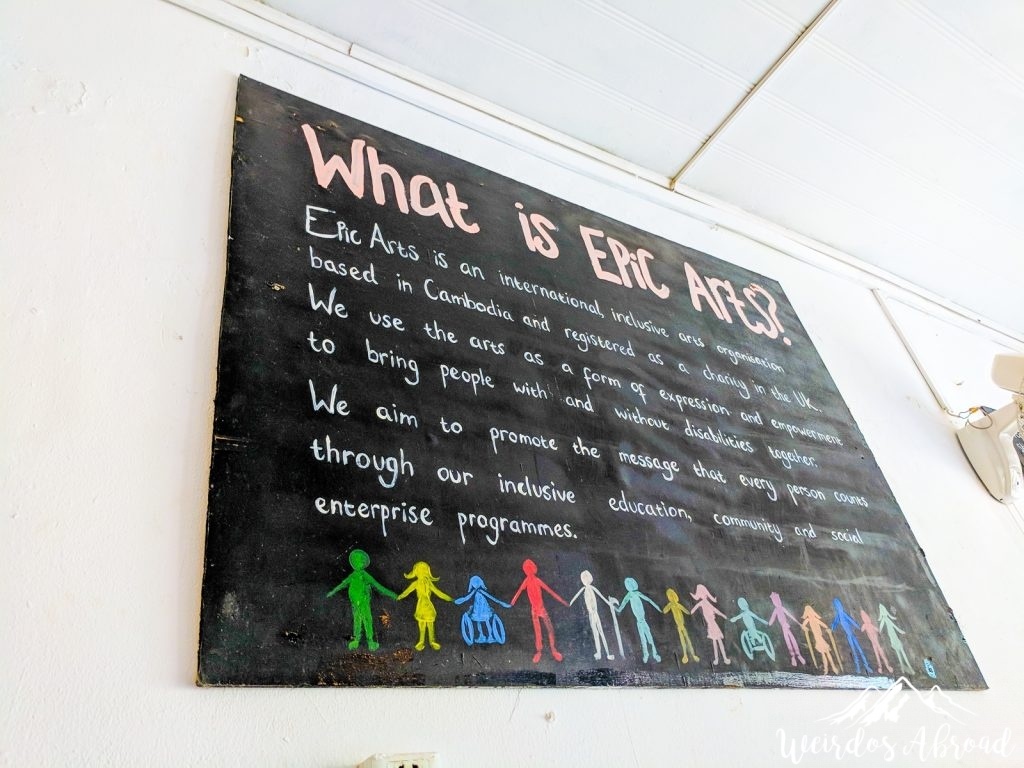 What is EPiC Arts?
Epic Arts is an international, inclusive arts organisation
based in Cambodia and registered as a charity in the UK.
We use the arts as a form of expression and empowerment
to bring people with and without disabilities together.
We aim to promote the message that every person counts
through our inclusive education, community and social
enterprise programmes.
Weirdos Abroad